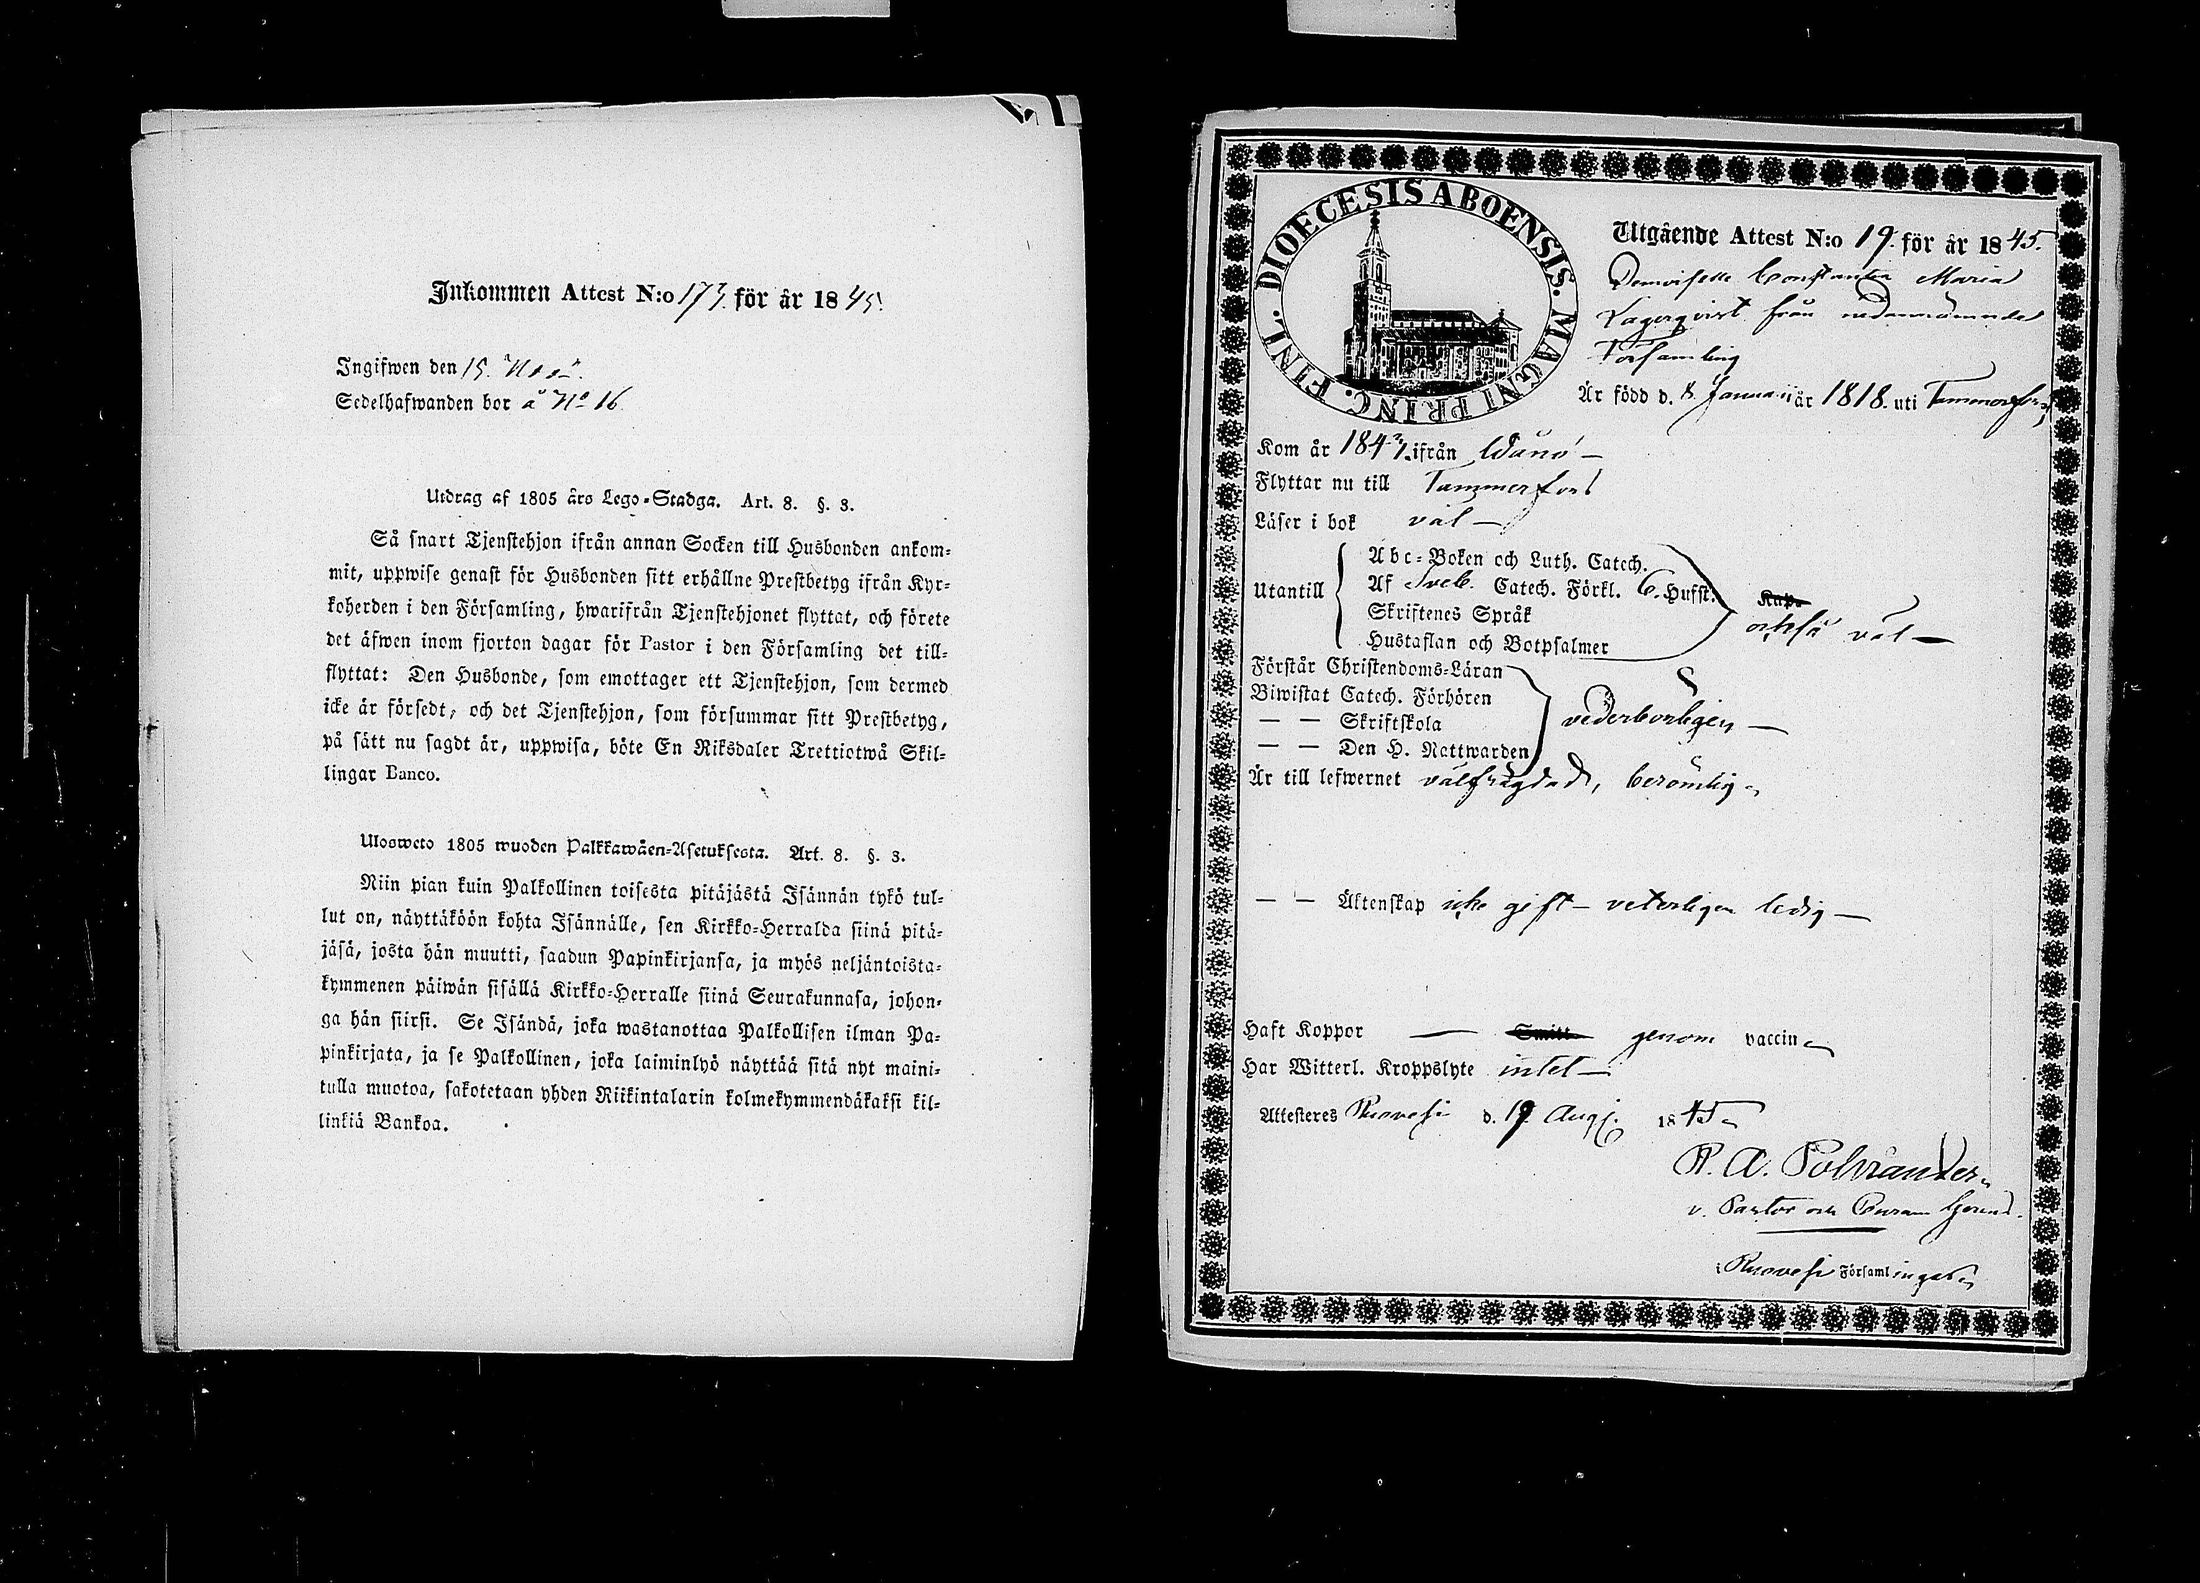 Inkommen Attest N:o 173. för år 1845.
Ingifwen den 15. Nov.
Sedelhafwanden bor å No 16
Utdrag af 1805 års Lego-Stadga. Art. 8. §. 3.
Så snart Tjenstehjon ifrån annan Socken till Husbonden ankom-
mit, uppwise genast för Husbonden sitt erhållne Prestbetyg ifrån Kyr-
koherden i den Församling, hwarifrån Tjenstehjonet flyttat, och förete
det äfwen inom fjorton dagar för Pastor i den Församling det till-
flyttat: Den Husbonde, som emottager ett Tjenstehjon, som dermed
icke är försedt, och det Tjenstehjon, som försummar sitt Prestbetyg,
på sätt nu sagdt är, uppwisa, böte En Riksdaler Trettiotwå Skil-
lingar Banco.
Ulosweto 1805 wuoden Palkkawäen-Asetuksesta. Art. 8. §. 3.
Niin pian kuin Palkollinen toisesta pitäjästä Isännän tykö tul-
lut on, näyttäköön kohta Isännälle, sen Kirkko-Herralda siinä pitä-
jäsä, josta hän muutti, saadun Papinkirjansa, ja myös neljäntoista-
kymmenen päiwän sisällä Kirkko-Herralle siinä Seurakunnasa, johon-
ga hän siirsi. Se Isändä, joka wastanottaa Palkollisen ilman Pa-
pinkirjata, ja se Palkollinen, joka laiminlyö näyttää sitä nyt maini-
tulla muotoa, sakotetaan yhden Riikintalarin kolmekymmendäkaksi kil-
linkiä Bankoa.
DIOECESIS ABOENSIS. MAGNI PRINC. FINL.
Utgående Attest N:o 19. för år 1845.
Demoiselle Constantia Maria
Lagerqvist från nedannämnde
Församling
Är född d. 8. Januarii år 1818. uti Tammerfors
Kom år 1843. ifrån Wånå
Flyttar nu till Tammerfors
Läser i bok väl
Abc-Boken och Luth. Catech.
Utantill Af Sveb. Catech. Förkl. 6. Hufst. Kap.
Skriftenes Språk också väl
Hustaflan och Botpsalmer
Förstår Christendoms-Läran
Biwistat Catech. Förhören
— — Skriftskola vederbörligen
— — Den H. Nattwarden
Är till lefwernet välfrägdad, berömlig
— — Äktenskap icke gift – veterligen ledig
Haft Koppor — Smitt genom vaccin
Har Witterl. Kroppslyte intet
Attesteres Ruovesi d. 19 Augusti 1845
v. Pastor och Curam Gerens.
i Ruovesi Församlingar